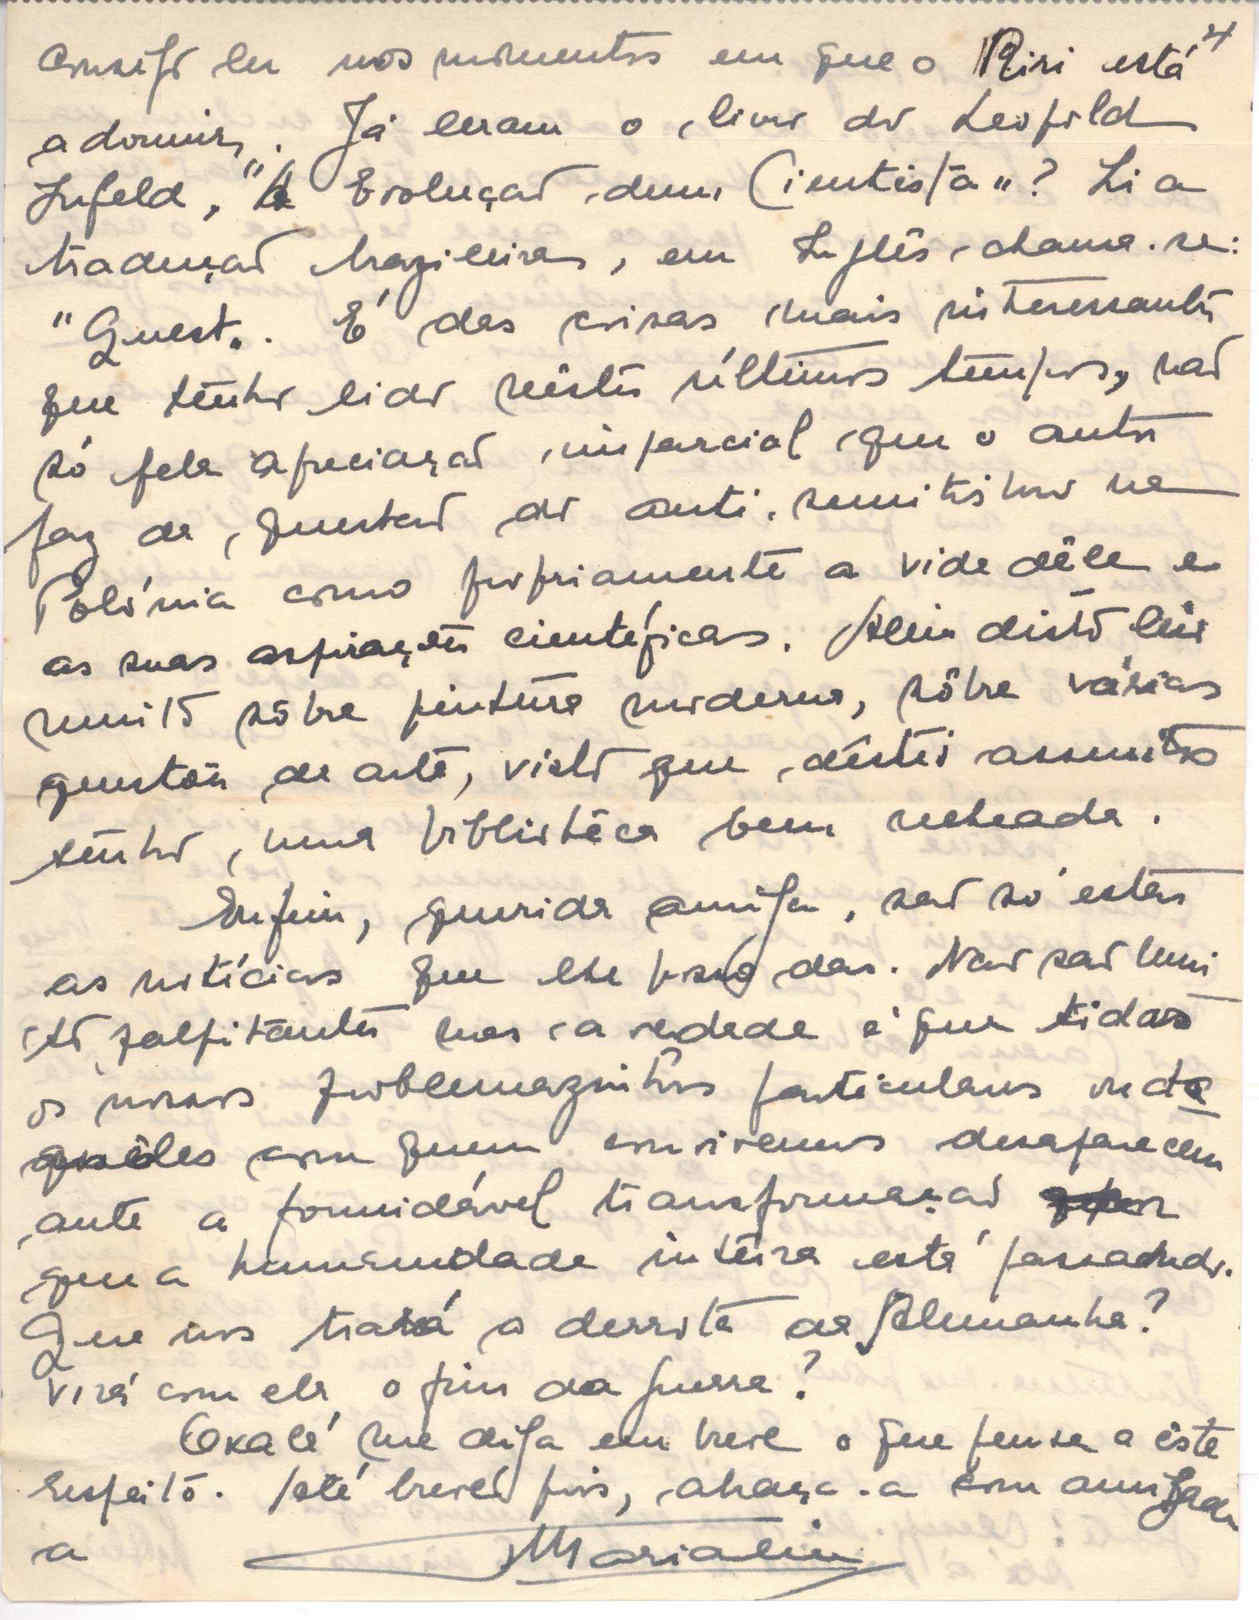 4
consigo ler nos momentos em que o Riri está
a dormir. Já leram o livro do Leopold
Infeld, "A Evolução dum Cientista"? Li a
tradução brazileira, em Inglês chama-se:
"Quest". É das coisas mais interessantes
que tenho lido nêstes últimos tempos, não
só pela apreciação imparcial que o autor
faz da questão do anti-semitismo na
Polónia como propriamente a vida dêle e
as suas aspirações científicas. Além disto leio
muito sôbre pintura moderna, sôbre várias
questões de arte, visto que dêstes assuntos
tenho uma bibliotéca bem recheada.
Enfim, querida amiga, são só estas
as notícias que lhe posso dar. Não são mui
to palpitantes mas a verdade é que todos
os nossos problemazinhos particulares ou da
quêles com quem convivemos desaparecem
ante a formidável transformação
que a humanidade inteira está passando.
Que nos trará a derrota da Alemanha?
Virá com ela o fim da guerra?
Oxalá me diga em breve o que pensa a êste
respeito. Até breve pois, abraça-a com amizade
a Marialin